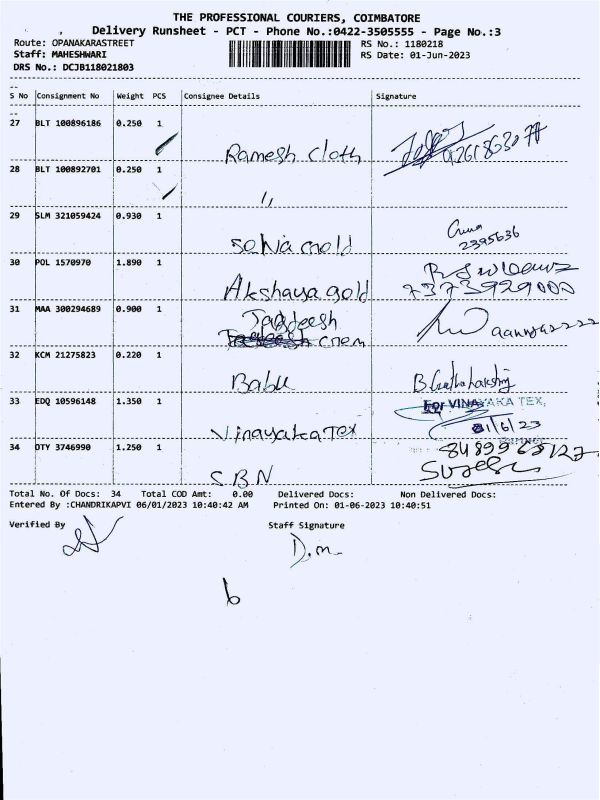 THE PROFESSIONAL COURIERS, COIMBATORE
Delivery Runsheet - PCT - Phone No.:0422-3505555 - Page No.:3
Route: OPANAKARASTREET
RS No.: 1180218
Staff: MAHESHWARI
RS Date: 01-Jun-2023
DRS No.: DCJB118021803
S No Consignment No Weight PCS Consignee Details Signature
27 BLT 100896186 0.250 1
Ramesh cloth
28 BLT 100892701 0.250 1
,,
29 SLM 321059424 0.930 1
2395636
30 POL 1570970 1.890 1
Akshaya gold 7373929000
31 MAA 300294689 0.900 1
Jagdeesh
32 KCM 21275823 0.220 1
Babu
33 EDQ 10596148 1.350 1 For VINAYAKA TEX,
Vinayaka Tex 01/6/23
34 DTY 3746990 1.250 1
S.B.N
Total No. Of Docs: 34 Total COD Amt: 0.00 Delivered Docs: Non Delivered Docs:
Entered By :CHANDRIKAPVI 06/01/2023 10:40:42 AM Printed On: 01-06-2023 10:40:51
Verified By Staff Signature
D.m
b